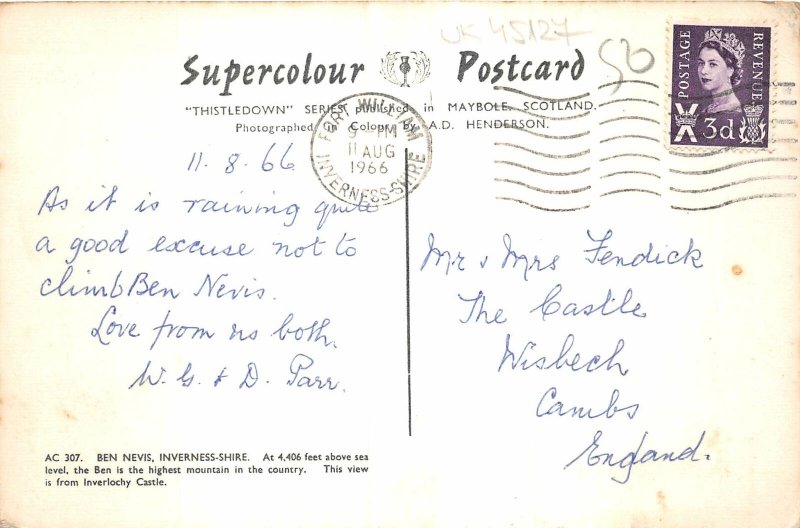 UK 45127
56
Supercolour Postcard
"THISTLEDOWN" SERIES published in MAYBOLE, SCOTLAND.
Photographed in Colour by A.D. HENDERSON.
POSTAGE
REVENUE
3d
FORT WILLIAM
9 - PM
11 AUG
1966
INVERNESS-SHIRE
11. 8. 66
As it is raining quite
a good excuse not to
climb Ben Nevis.
Love from us both.
W. G. & D. Parr.
Mr & Mrs Fendick
The Castle
Wisbech
Cambs
England.
AC 307. BEN NEVIS, INVERNESS-SHIRE. At 4,406 feet above sea
level, the Ben is the highest mountain in the country. This view
is from Inverlochy Castle.